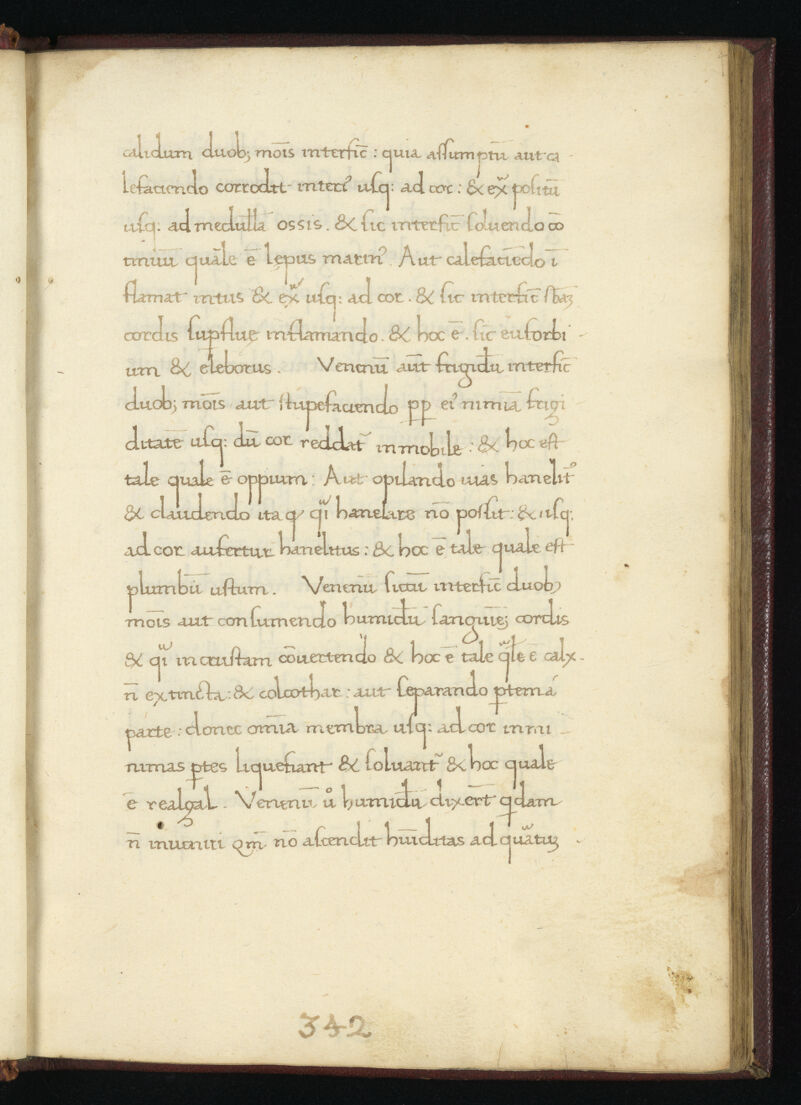 calidum duobꝫ mo͞is interfic͞ : quia assumptu͞ aut ca
lefaciendo corrodit interi᷒ usqꝫ ad cor : & ex͞ positu͞
usqꝫ ad medulla͞ ossis . & sic interfic͞ soluendo co͞
tinuu͞ quale e͞ lepus marin᷒ . Aut calefacie͞do i͞
flamat intus & ex͞ usqꝫ ad cor . & sic interfic͞ sba͞ꝫ
cordis supflue inflamando . & hoc e͞ . sic euforbi
um & eleborus . Venenu͞ aut͞ frigidu͞ interfic͞
duobꝫ mo͞is aut stupefaciendo pp ei᷒ nimia͞ frigi
ditate͞ usqꝫ du͞ cor reddat immobile : & hoc est
tale quale e͞ oppium : Aut opilando uias hanelit᷒
& claudendo ita qꝫ qi͞ hanelare no͞ possit : & usqꝫ
ad cor aufertur hanelitus : & hoc e͞ tale quale est
plumbu͞ ustum . Venenu͞ siccu͞ interfic͞ duobꝫ
mo͞is aut consumendo humidu͞ sanguine͞ꝫ cordis
& qi͞ in crustam co͞uertendo & hoc e͞ tale q͞le e͞ calx
n͞ extincta : & colcothar : aut separando ptem a͞
parte : donec omnia membra usqꝫ ad cor in mi
nimas ptes liquefiant & soluant᷒ & hoc quale
e͞ realgal . Venenu͞ uͦ humidu͞ dixert͞ qdam
n͞ inueniri qm͞ no͞ ascendit hu͞iditas ad qua͞tuꝫ
342